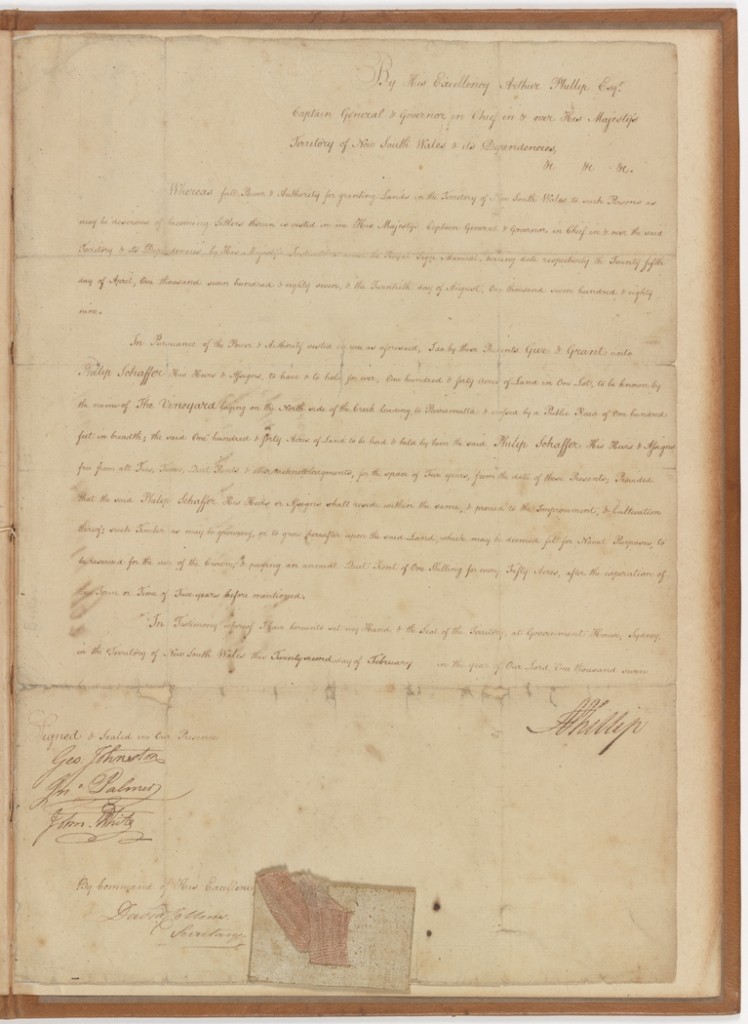 By His Excellency Arthur Phillip Esqr.
Captain General & Governor in Chief in & over His Majesty's
Territory of New South Wales & its Dependencies,
&c &c &c.
Whereas full Power & Authority for granting Lands in the Territory of New South Wales to such Persons as
may be desirous of becoming Settlers therein is vested in me His Majesty's Captain General & Governor in Chief in & over the said
Territory & its Dependencies by His Majesty's Instructions under the Royal Sign Manual, bearing date respectively the Twenty fifth
day of April, One thousand seven hundred & eighty seven, & the Twentieth day of August, One thousand seven hundred & eighty
nine.
In Pursuance of the Power & Authority vested in me as aforesaid, I do by these Presents Give & Grant unto
Philip Schaffer His Heirs & Assigns, to have & to hold for ever, One hundred & forty Acres of Land in One Lot, to be known by
the name of The Vineyard laying on the North side of the Creek leading to Parramatta & crossed by a Public Road of One hundred
feet in breadth; the said One hundred & forty Acres of Land to be had & held by him the said Philip Schaffer His Heirs & Assigns
free from all Fees, Taxes, Quit Rents & other Acknowledgments, for the space of Ten years, from the date of these Presents; Provided
that the said Philip Schaffer His Heirs or Assigns shall reside within the same, & proceed to the Improvement, & Cultivation
thereof; such Timber as may be growing, or to grow hereafter upon the said Land, which may be deemed fit for Naval Purposes, to
be reserved for the use of the Crown, & paying an annual Quit Rent of One Shilling for every Fifty Acres, after the expiration of
the Term or Time of Ten years before mentioned.
In Testimony whereof I have hereunto set my Hand & the Seal of the Territory, at Government House, Sydney,
in the Territory of New South Wales this Twenty second day of February in the year of Our Lord, One thousand seven
A Phillip
Signed & Sealed in Our Presence
Geo. Johnston
Jno. Palmer
John White
By Command of His Excellency
David Collins
Secretary